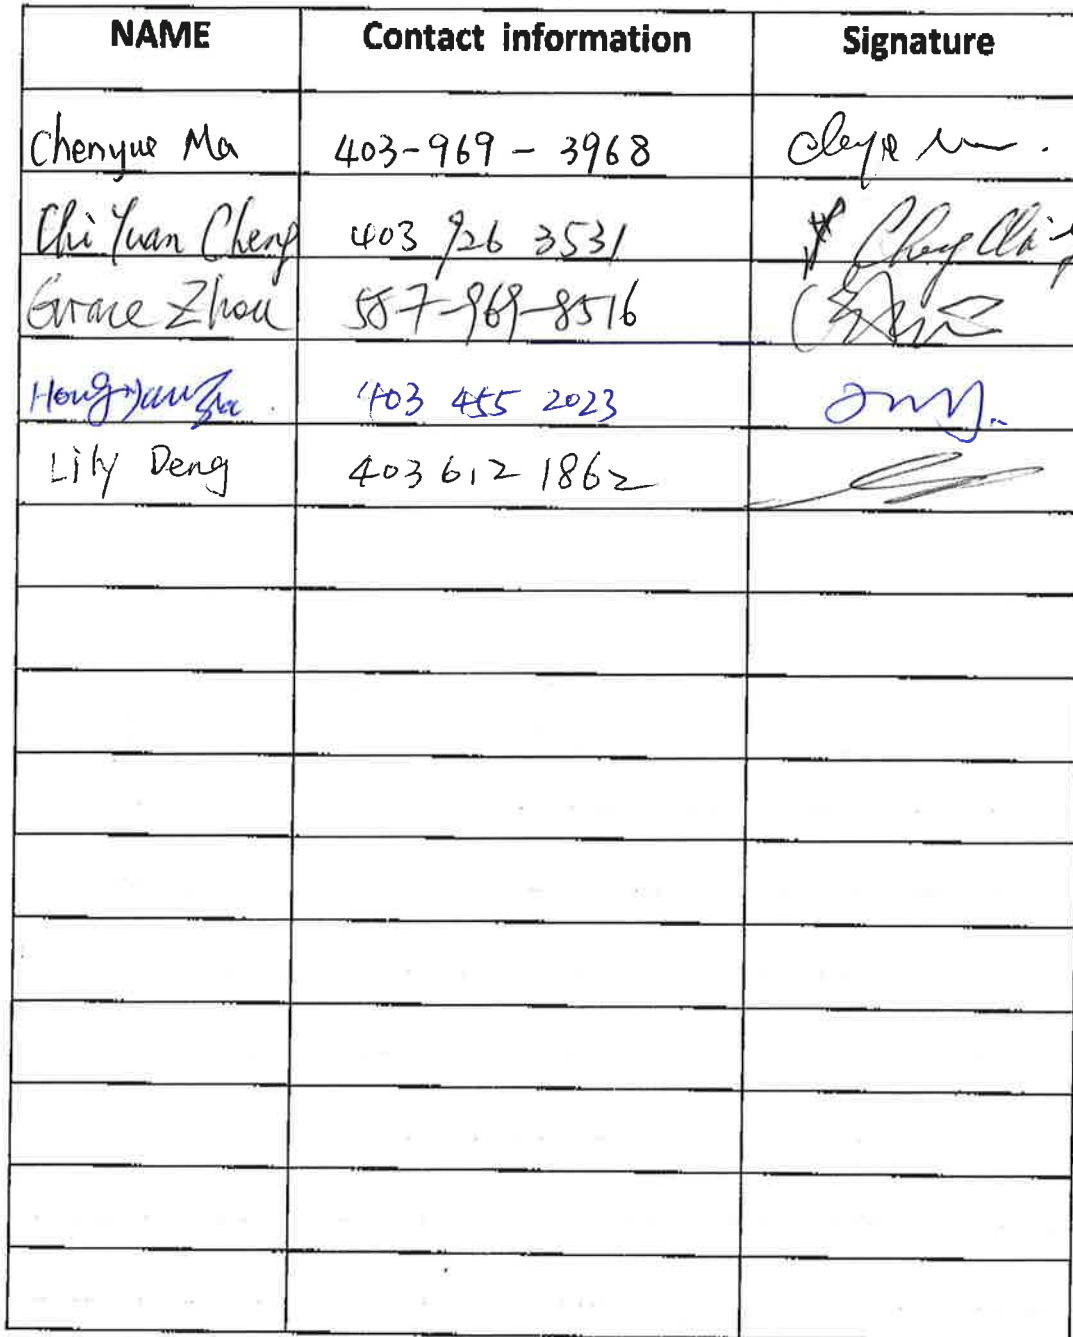 NAME Contact information Signature
Chenyue Ma 403-969-3968
Chi Yuan Cheng 403 926 3531 Cheng Chi
Grace Zhou 587-969-8516
403 455 2023
Lily Deng 403 612 1862